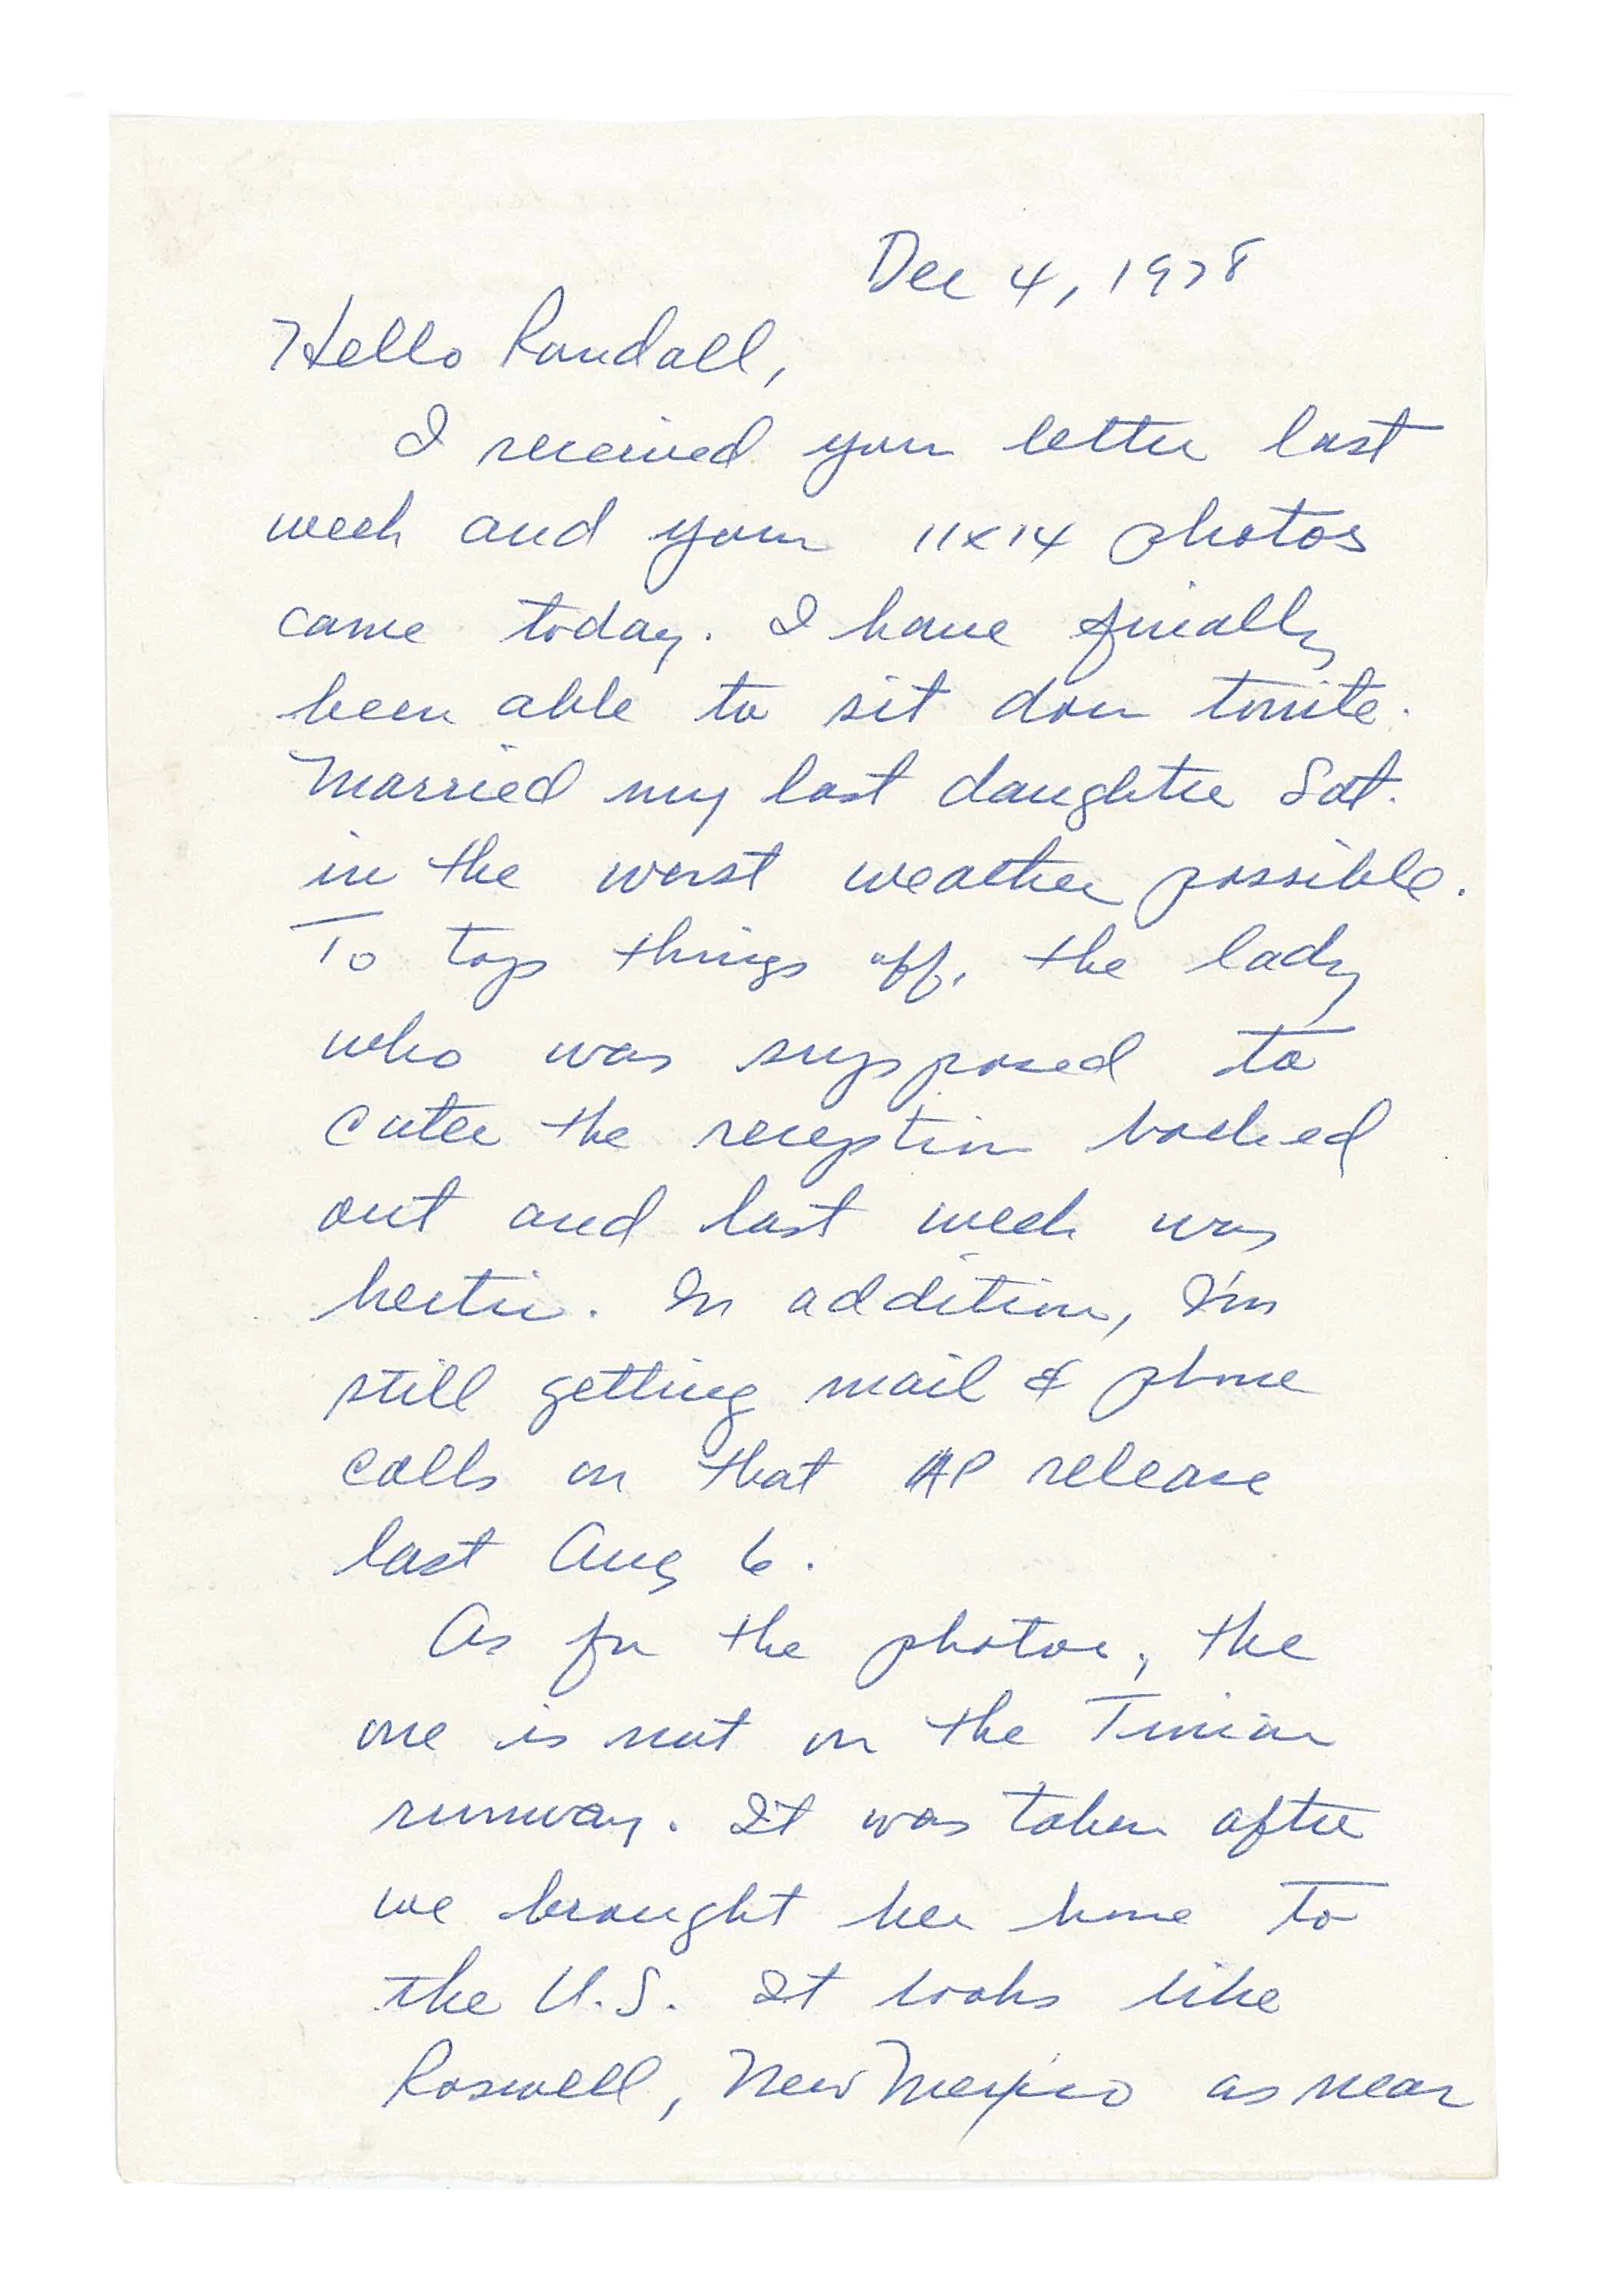 Dec 4, 1978
Hello Randall,
I received your letter last
week and your 11x14 photos
came today. I have finally
been able to sit down tonite.
Married my last daughter Sat.
in the worst weather possible.
To tops things off, the lady
who was supposed to
cater the reception backed
out and last week was
hectic. In addition, I'm
still getting mail & phone
calls on that AP release
last Aug 6.
As for the photos, the
one is not on the Tinian
runway. It was taken after
we brought her home to
the U.S. It looks like
Roswell, New Mexico as near